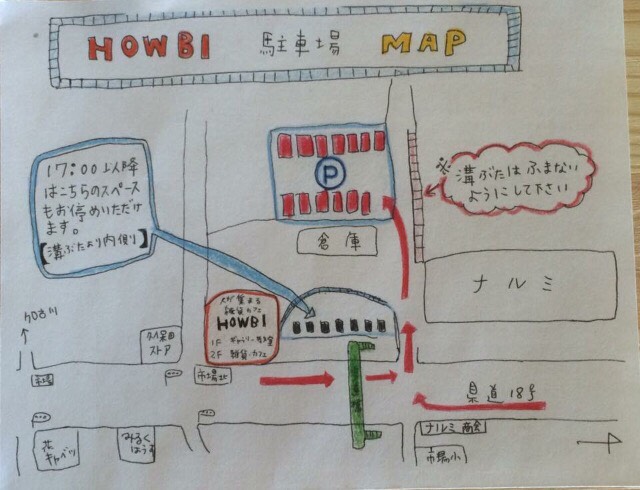 HOWBI 駐車場 MAP
17:00以降
はこちらのスペース
もお停めいただけ
ます。
【溝ぶたより内側】
P
※
溝ぶたは ふまない
ようにして下さい
倉庫
ナルミ
人が集まる
雑貨カフェ
HOWBI
1F ギャラリー・教室
2F 雑貨・カフェ
加古川
久保田
ストア
市場
市場北
県道18号
花
キャベツ
みるく
はうす
ナルミ 商会
市場小